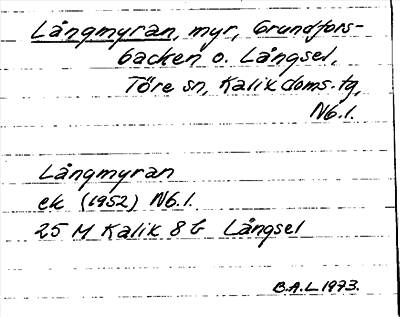 Långmyran, myr, Grundfors-
backen o. Långsel,
Töre sn, Kalix doms. tg,
Nb.l.
Långmyran
ek (1952) Nb.l.
25 M Kalix 8 b Långsel
B.A.L 1973.